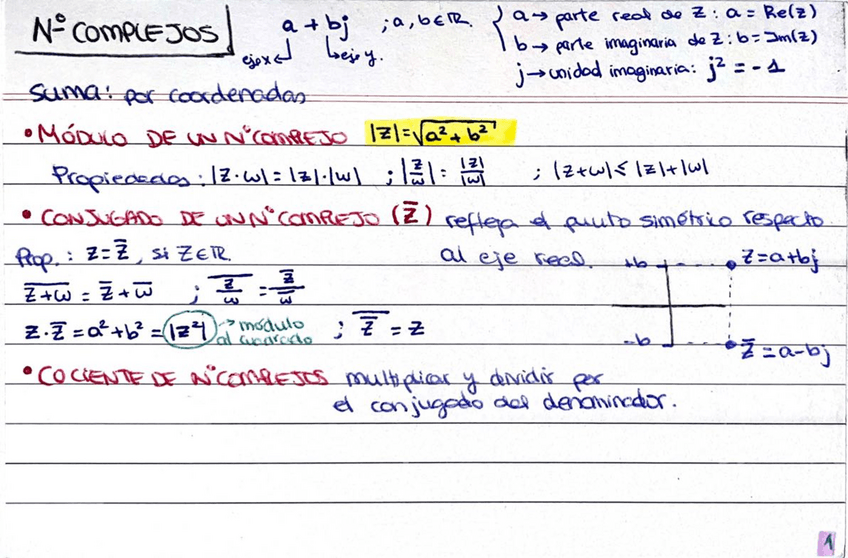 Nº COMPLEJOS
a + bj ; a, b ∈ ℝ.
eje x
eje y.
a → parte real de z : a = Re(z)
b → parte imaginaria de z : b = Im(z)
j → unidad imaginaria: j² = -1
suma: por coordenadas
• MÓDULO DE UN Nº COMPLEJO |z| = √(a² + b²)
Propiedades: |z·ω| = |z|·|ω| ; |z/ω| = |z|/|ω| ; |z+ω| ≤ |z|+|ω|
• CONJUGADO DE UN Nº COMPLEJO (z̅) refleja el punto simétrico respecto
al eje real.
Prop.: z = z̅, si z ∈ ℝ.
\overline{z+ω} = z̅ + ω̅ ; \overline{z/ω} = z̅/ω̅
z·z̅ = a² + b² = |z²| → módulo al cuadrado ; \overline{z̅} = z
+b z = a + bj
-b z̅ = a - bj
• COCIENTE DE Nº COMPLEJOS multiplicar y dividir por
el conjugado del denominador.
1